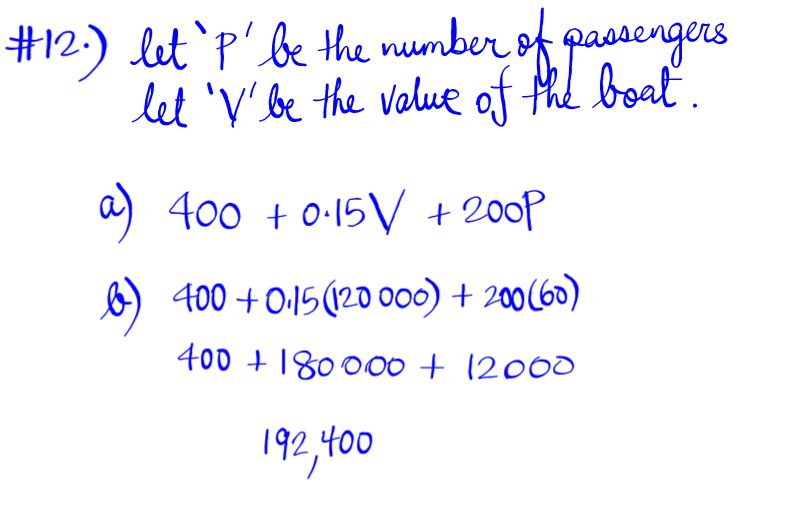 #12.) let 'P' be the number of passengers
let 'V' be the value of the boat.
a) 400 + 0.15V + 200P
b) 400 + 0.15(120 000) + 200(60)
400 + 180000 + 12000
192,400